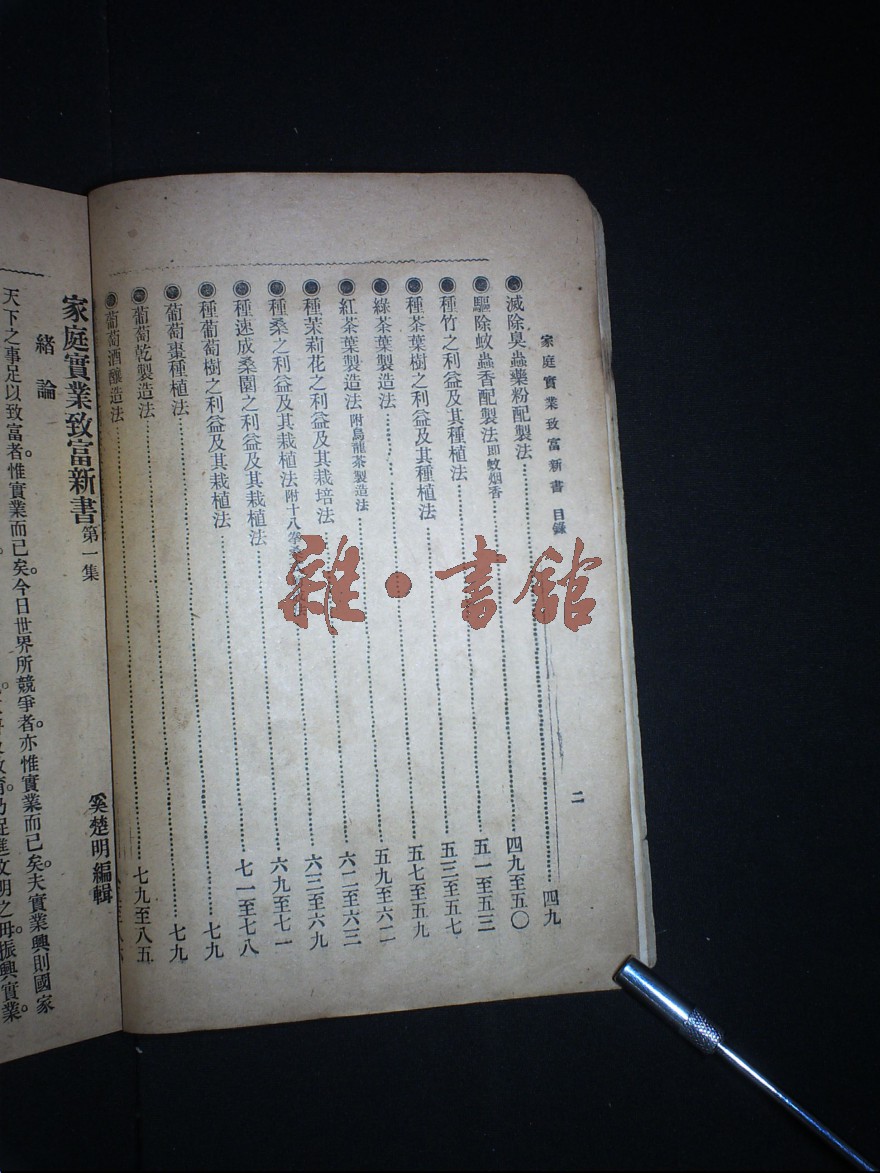 家庭實業致富新書 目錄 二
滅除臭蟲藥粉配製法 四九
驅除蚊蟲香配製法 即蚊烟香 四九至五〇
種竹之利益及其種植法 五一至五三
種茶葉樹之利益及其種植法 五三至五七
綠茶葉製造法 五七至五九
紅茶葉製造法 附烏龍茶製造法 五九至六二
種茉莉花之利益及其栽培法 六二至六三
種桑之利益及其栽植法 附十八拳 六三至六九
種速成桑園之利益及其栽植法 六九至七一
種葡萄樹之利益及其栽植法 七一至七八
葡萄棗種植法 七九
葡萄乾製造法 七九
葡萄酒釀造法 七九至八五
家庭實業致富新書 第一集
奚楚明編輯
緒論
天下之事足以致富者。惟實業而已矣。今日世界所競爭者。亦惟實業而已矣。夫實業興則國家
乃促進文明之母。振興實業。
雜·書館